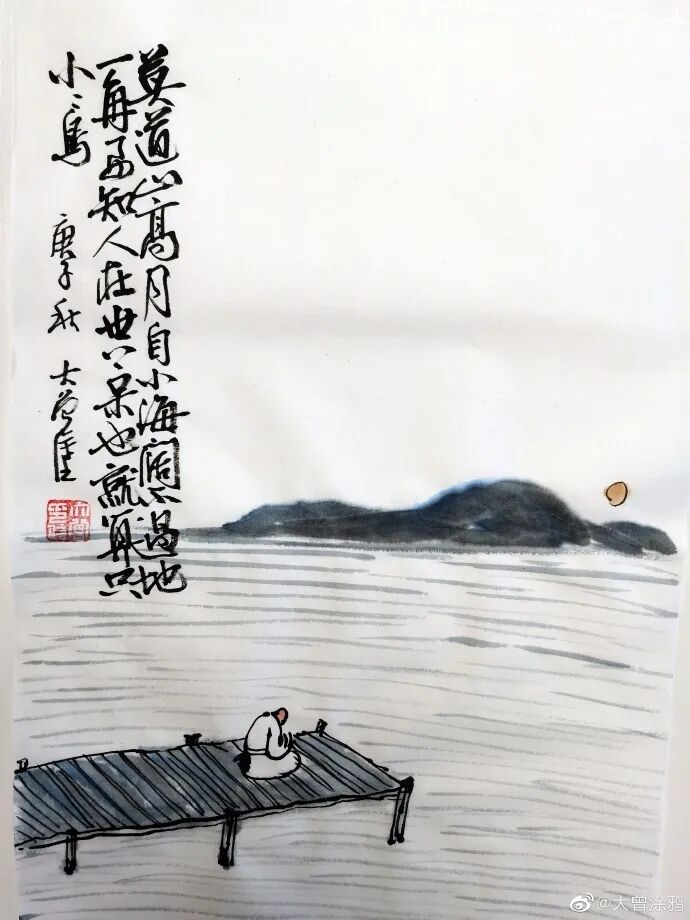 莫道山高月自小海阔不过地
一角要知人在世上呆也就算只
小小鸟
庚子秋 大曾
@大曾涂鸦